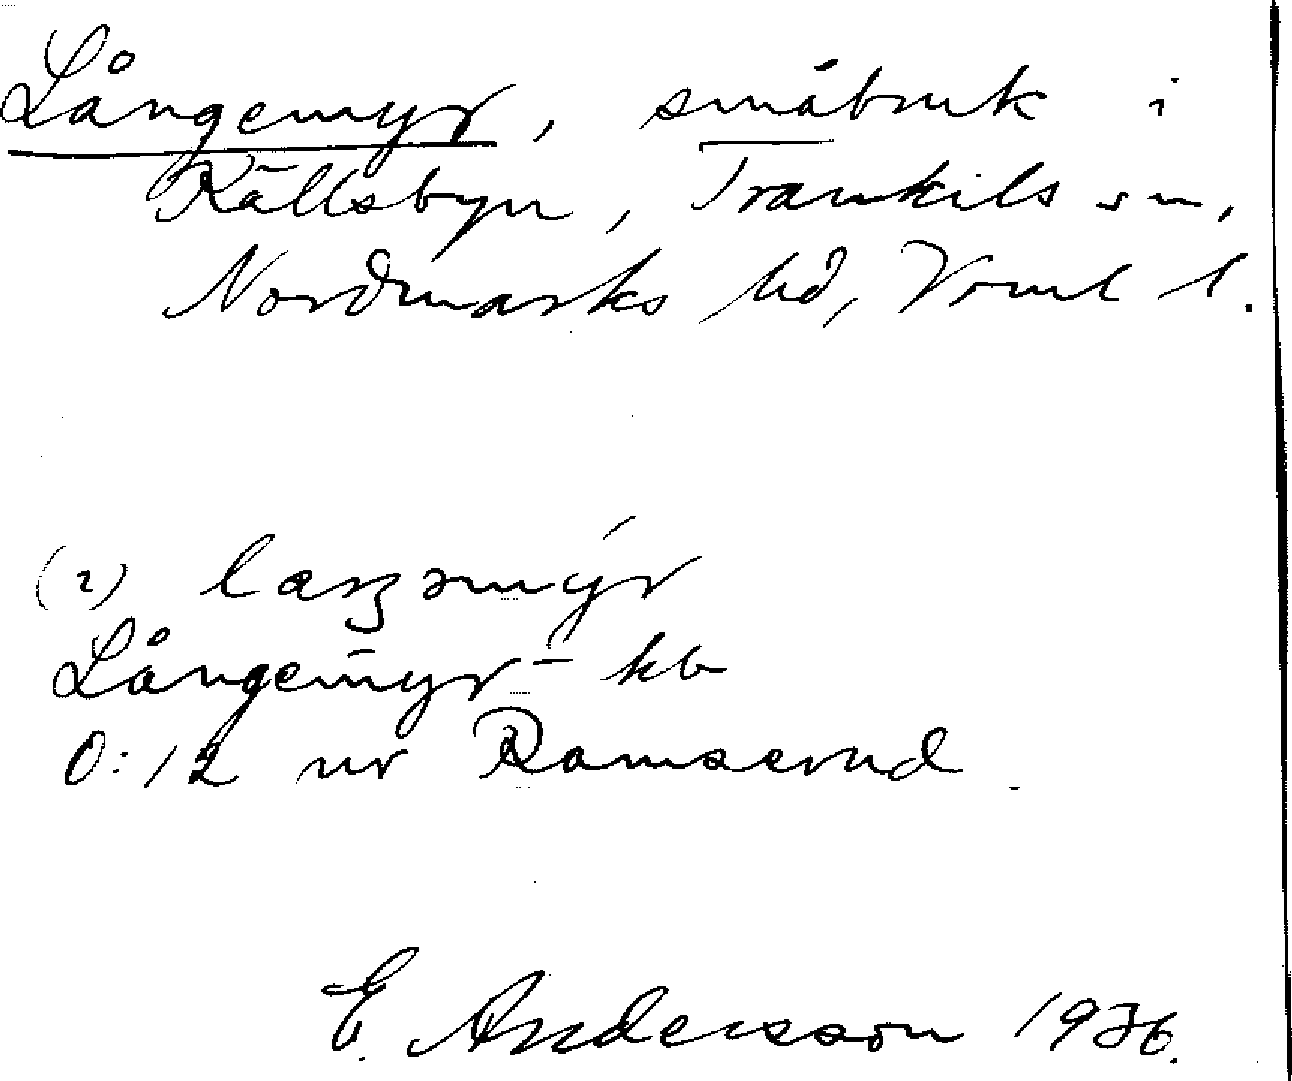 Långemyr, småbruk i
Källsbyn, Trankils sn,
Nordmarks hd, Vrml l.
(2)
Långemyr - kb
0:12 nv Ramserud
E. Andersson 1936.